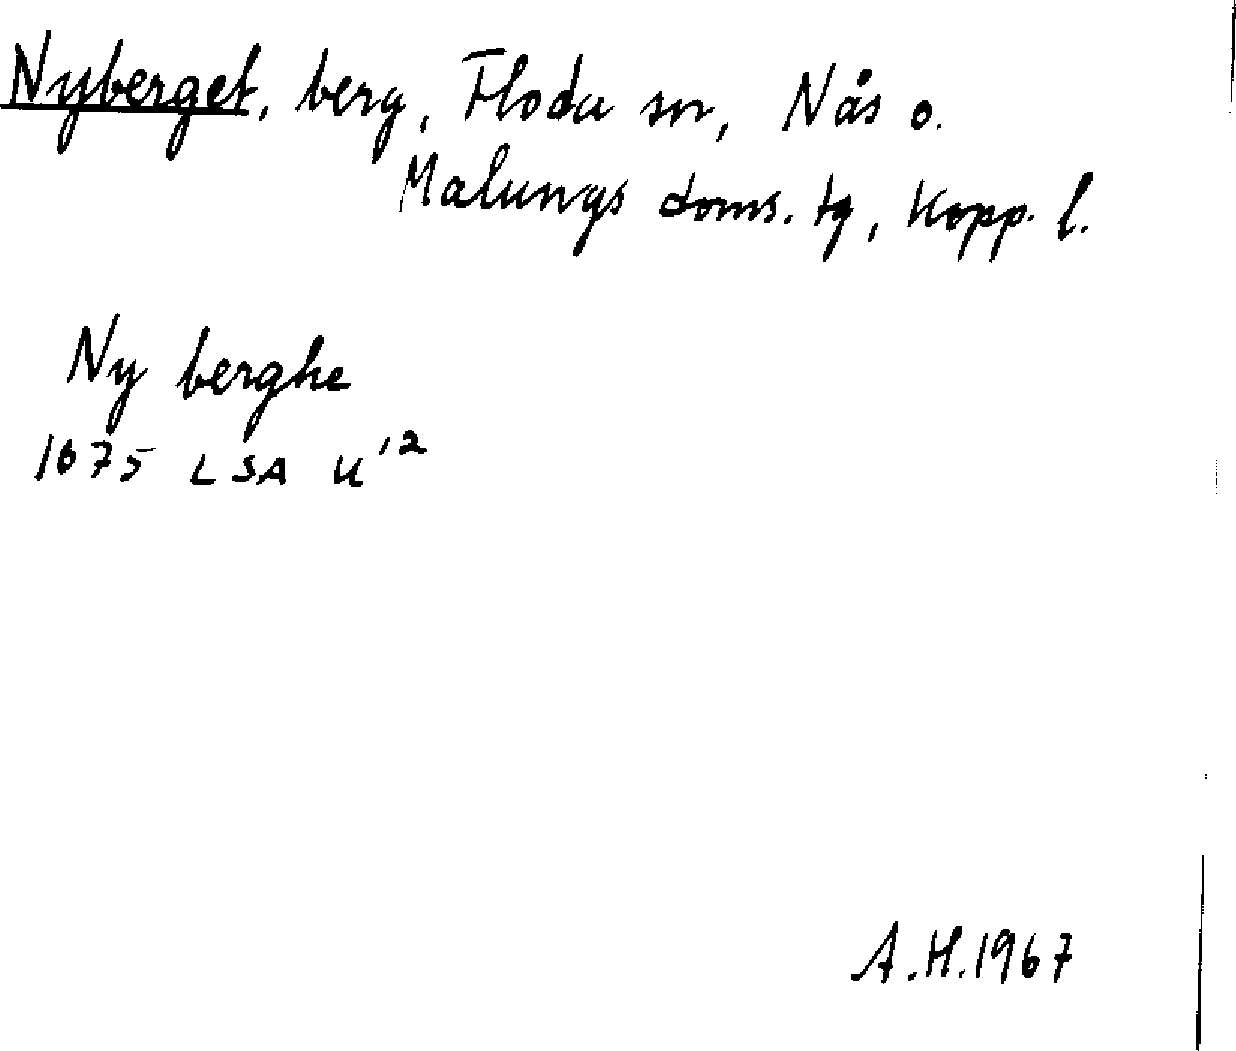 Nyberget, berg, Floda sn, Nås o.
Malungs doms. tg, Kopp. l.
Ny berghe
1675 LSA U'2
A.H.1967